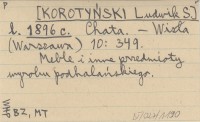 P
[KOROTYŃSKI Ludwik S.]
Ł. 1896 c. Chata. - Wisła
(Warszawa) 10: 349.
Meble i inne przedmioty
wyrobu podhalańskiego.
BZ, MT